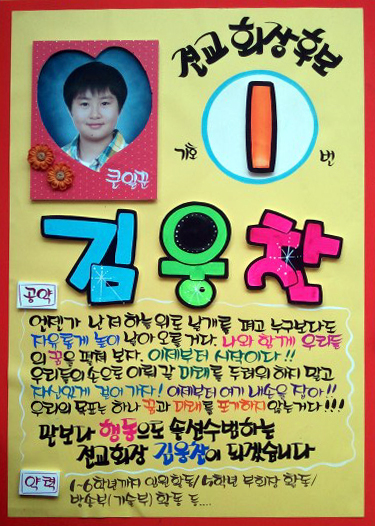 전교 회장후보
큰일꾼
기호 1 번
김응찬
공약
언젠가 난 저 하늘 위로 날개를 펴고 누구보다도
자유롭게 높이 날아 오를 거다. 나와 함께 우리들
의 꿈을 펼쳐 보자. 이제부터 시작이다!!
우리들의 손으로 이뤄 갈 미래를 두려워 하지 말고
자신있게 걸어 가자! 이제부터 여기 내손을 잡아!!
우리의 목표는 하나 꿈과 미래를 포기하지 않는거다!!!
말보다 행동으로 솔선수범하는
전교회장 김응찬이 되겠습니다
약력
1~6학년까지 임원활동/ 5학년 부회장 활동/
방송부/ 기술부/ 활동 등....